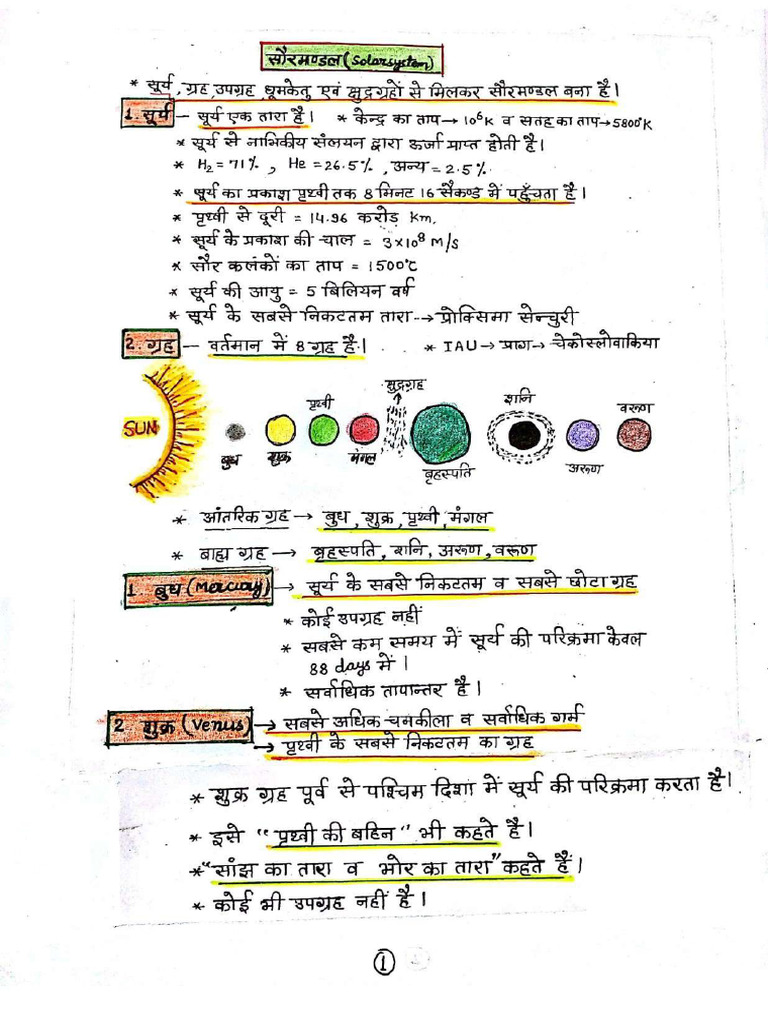 सौरमण्डल (Solarsystem)
* सूर्य, ग्रह, उपग्रह, धूमकेतु एवं क्षुद्रग्रहों से मिलकर सौरमण्डल बना है।
1. सूर्य – सूर्य एक तारा है। * केन्द्र का ताप → 10⁶K व सतह का ताप → 5800°K
* सूर्य से नाभिकीय संलयन द्वारा ऊर्जा प्राप्त होती है।
* H₂ = 71%, He = 26.5%, अन्य = 2.5%
* सूर्य का प्रकाश पृथ्वी तक 8 मिनट 16 सैकण्ड में पहुँचता है।
* पृथ्वी से दूरी = 14.96 करोड़ Km.
* सूर्य के प्रकाश की चाल = 3×10⁸ M/s
* सौर कलंकों का ताप = 1500°C
* सूर्य की आयु = 5 बिलियन वर्ष
* सूर्य के सबसे निकटतम तारा → प्रोक्सिमा सेन्चुरी
2. ग्रह – वर्तमान में 8 ग्रह है। * IAU → प्राग → चेकोस्लोवाकिया
SUN
बुध
शुक्र
पृथ्वी
मंगल
क्षुद्रग्रह
बृहस्पति
शनि
अरूण
वरूण
* आंतरिक ग्रह → बुध, शुक्र, पृथ्वी, मंगल
* बाह्य ग्रह → बृहस्पति, शनि, अरूण, वरूण
1 बुध (Mercury) → सूर्य के सबसे निकटतम व सबसे छोटा ग्रह
* कोई उपग्रह नहीं
* सबसे कम समय में सूर्य की परिक्रमा केवल
88 days में।
* सर्वाधिक तापान्तर है।
2 शुक्र (Venus) → सबसे अधिक चमकीला व सर्वाधिक गर्म
→ पृथ्वी के सबसे निकटतम का ग्रह
* शुक्र ग्रह पूर्व से पश्चिम दिशा में सूर्य की परिक्रमा करता है।
* इसे "पृथ्वी की बहिन" भी कहते है।
* "सांझ का तारा व भोर का तारा" कहते है।
* कोई भी उपग्रह नहीं है।
1